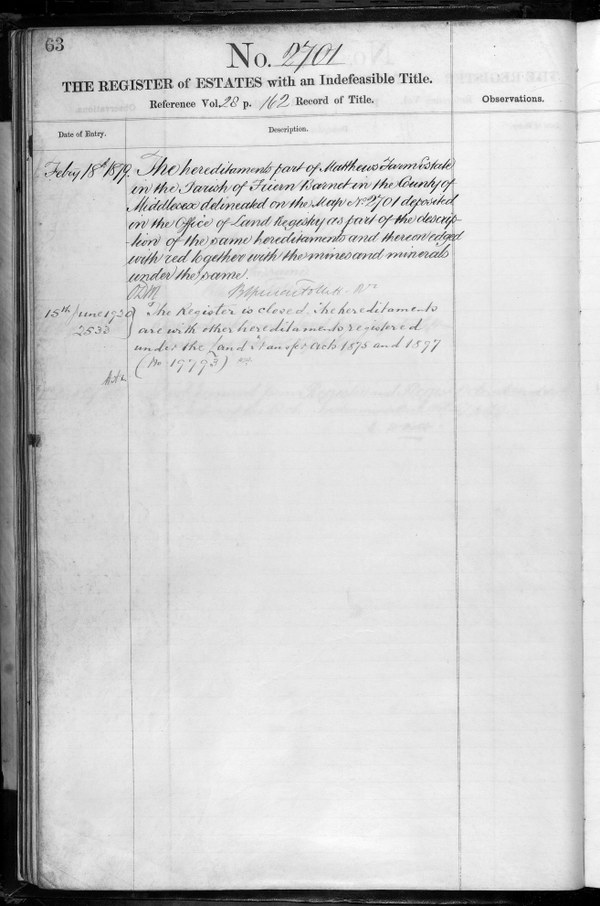 63
No. 2701
THE REGISTER of ESTATES with an Indefeasible Title.
Reference Vol. 28 p. 162 Record of Title.
Observations.
Date of Entry.
Description.
Feby 18th 1879
The hereditaments part of Matthews Farm Estate
in the Parish of Friern Barnet in the County of
Middlesex delineated on the Map No 2701 deposited
in the Office of Land Registry as part of the descrip-
tion of the same hereditaments and thereon edged
with red together with the mines and minerals
under the same.
15th June 1920
2533
The Register is closed. The hereditaments
are with other hereditaments registered
under the Land Transfer Acts 1875 and 1897
(No 19793)